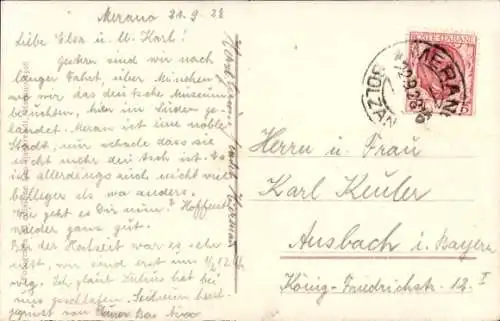 Merano 21.9.28
Liebe Elsa u. lb. Karl!
Gestern sind wir nach
langer Fahrt, über München
wo wir das deutsche Museum
besuchten, hier im Süden ge-
landet. Meran ist eine noble
Stadt, nur schade dass sie
nicht mehr deutsch ist. Es
ist allerdings auch nicht viel
als wo anders.
Wie geht es Dir nun? Hoffentl.
wieder ganz gut.
Bei der Hochzeit war es sehr
nett, wir sind erst um 1/2 12
weg. Ich glaub hat bei
uns geschlafen. Seitdem
von
POSTE ITALIANE
MERANO
22.9.28
BOLZANO
Herrn u. Frau
Karl Keuler
Ansbach i. Bayern
König-Friedrichstr. 19 I